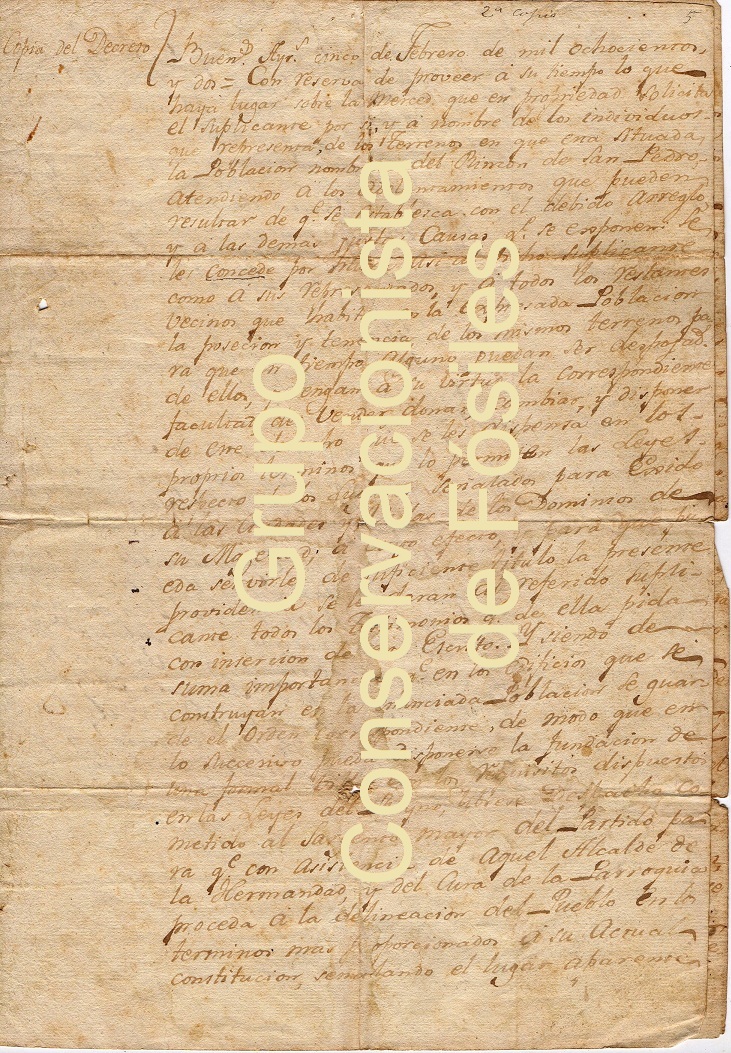 2ª copia
5
Copia del Decreto
Buen.ˢ Ayr.ˢ cinco de Febrero de mil ochocientos,
y dos = Con reserva de proveer á su tiempo lo que
haya lugar sobre la Merced, que en propriedad solicita
el Suplicante por si, y á nombre de los individuos
que representa, de los terrenos en que está situada
la Poblacion del Rincon de San Pedro,
Atendiendo á los que pueden
resultar de q.ᵉ se establesca con el debido Arreglo
y á las demas Causas q.ᵉ se exponen: Se
les Concede por Suplicante
como á sus y á todos los restantes
vecinos que Poblacion
la posecion y tenencia de los mismos terrenos pa
ra que en tiempo Alguno puedan ser despojad.ˢ
de ellos, tengan la Correspondiente
facultad de Vender donar, Cambiar, y disponer
de en los
proprios terminos que lo permiten las Leyes
respecto señalados para Exido
á las de los Dominios de
su para que pu
eda servirle de suficiente titulo la presente
providencia se le referido supli-
cante todos los Testimonios q.ᵉ de ella pida
con insercion de Escrito. Y siendo de
suma importancia q.ᵉ en los Edificios que se
construyan en la enunciada Poblacion se guar
de el Orden Correspondiente, de modo que en
lo succesivo puede disponerse la fundacion de
una formal requisitos dispuestos
en las Leyes librese Despacho Co-
metido al Sargento mayor del Partido pa
ra q.ᵉ con Asistencia de Aquel Alcalde de
la Hermandad, y del Cura de la Parroquia
proceda á la delineacion del Pueblo en lo
terminos mas proporcionados á su Actual
constitucion, señalando el lugar aparente
Grupo
Conservacionista
de Fósiles